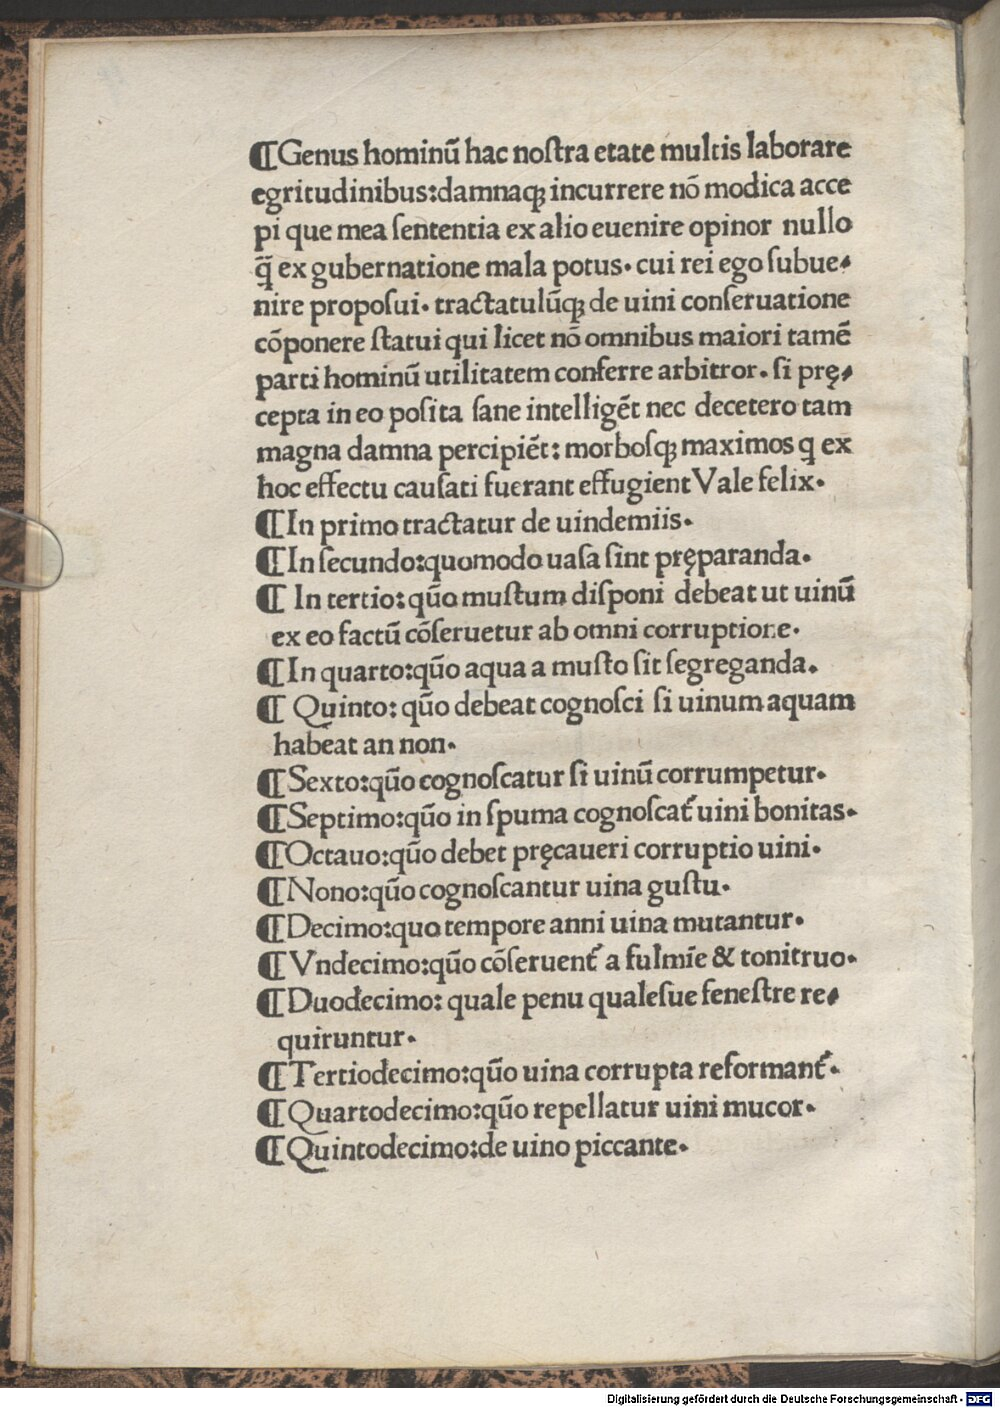 ¶Genus hominū hac noſtra etate multis laborare
egritudinibus:damnaqꝫ incurrere nō modica acce
pi que mea ſententia ex alio euenire opinor nullo
q̄ ex gubernatione mala potus. cui rei ego ſubue-
nire propoſui. tractatulūqꝫ de uini conſeruatione
cōponere ſtatui qui licet nō omnibus maiori tamē
parti hominū utilitatem conferre arbitror. ſi prę-
cepta in eo poſita ſane intelligēt nec decetero tam
magna damna percipiēt: morboſqꝫ maximos ꝗ ex
hoc effectu cauſati fuerant effugient Vale felix.
¶In primo tractatur de uindemiis.
¶In ſecundo:quomodo uaſa ſint pręparanda.
¶ In tertio: quō muſtum diſponi debeat ut uinū
ex eo factū cōſeruetur ab omni corruptione.
¶In quarto:quō aqua a muſto ſit ſegreganda.
¶ Quinto: quō debeat cognoſci ſi uinum aquam
habeat an non.
¶Sexto:quō cognoſcatur ſi uinū corrumpetur.
¶Septimo:quō in ſpuma cognoſcat᷑ uini bonitas.
¶Octauo:quō debet pręcaueri corruptio uini.
¶Nono:quō cognoſcantur uina guſtu.
¶Decimo:quo tempore anni uina mutantur.
¶Vndecimo:quō cōſeruent᷑ a fulmīe & tonitruo.
¶Duodecimo: quale penu qualeſue feneſtre re-
quiruntur.
¶Tertiodecimo:quō uina corrupta reformant᷑.
¶Quartodecimo:quō repellatur uini mucor.
¶Quintodecimo:de uino piccante.
Digitalisierung gefördert durch die Deutsche Forschungsgemeinschaft - DFG